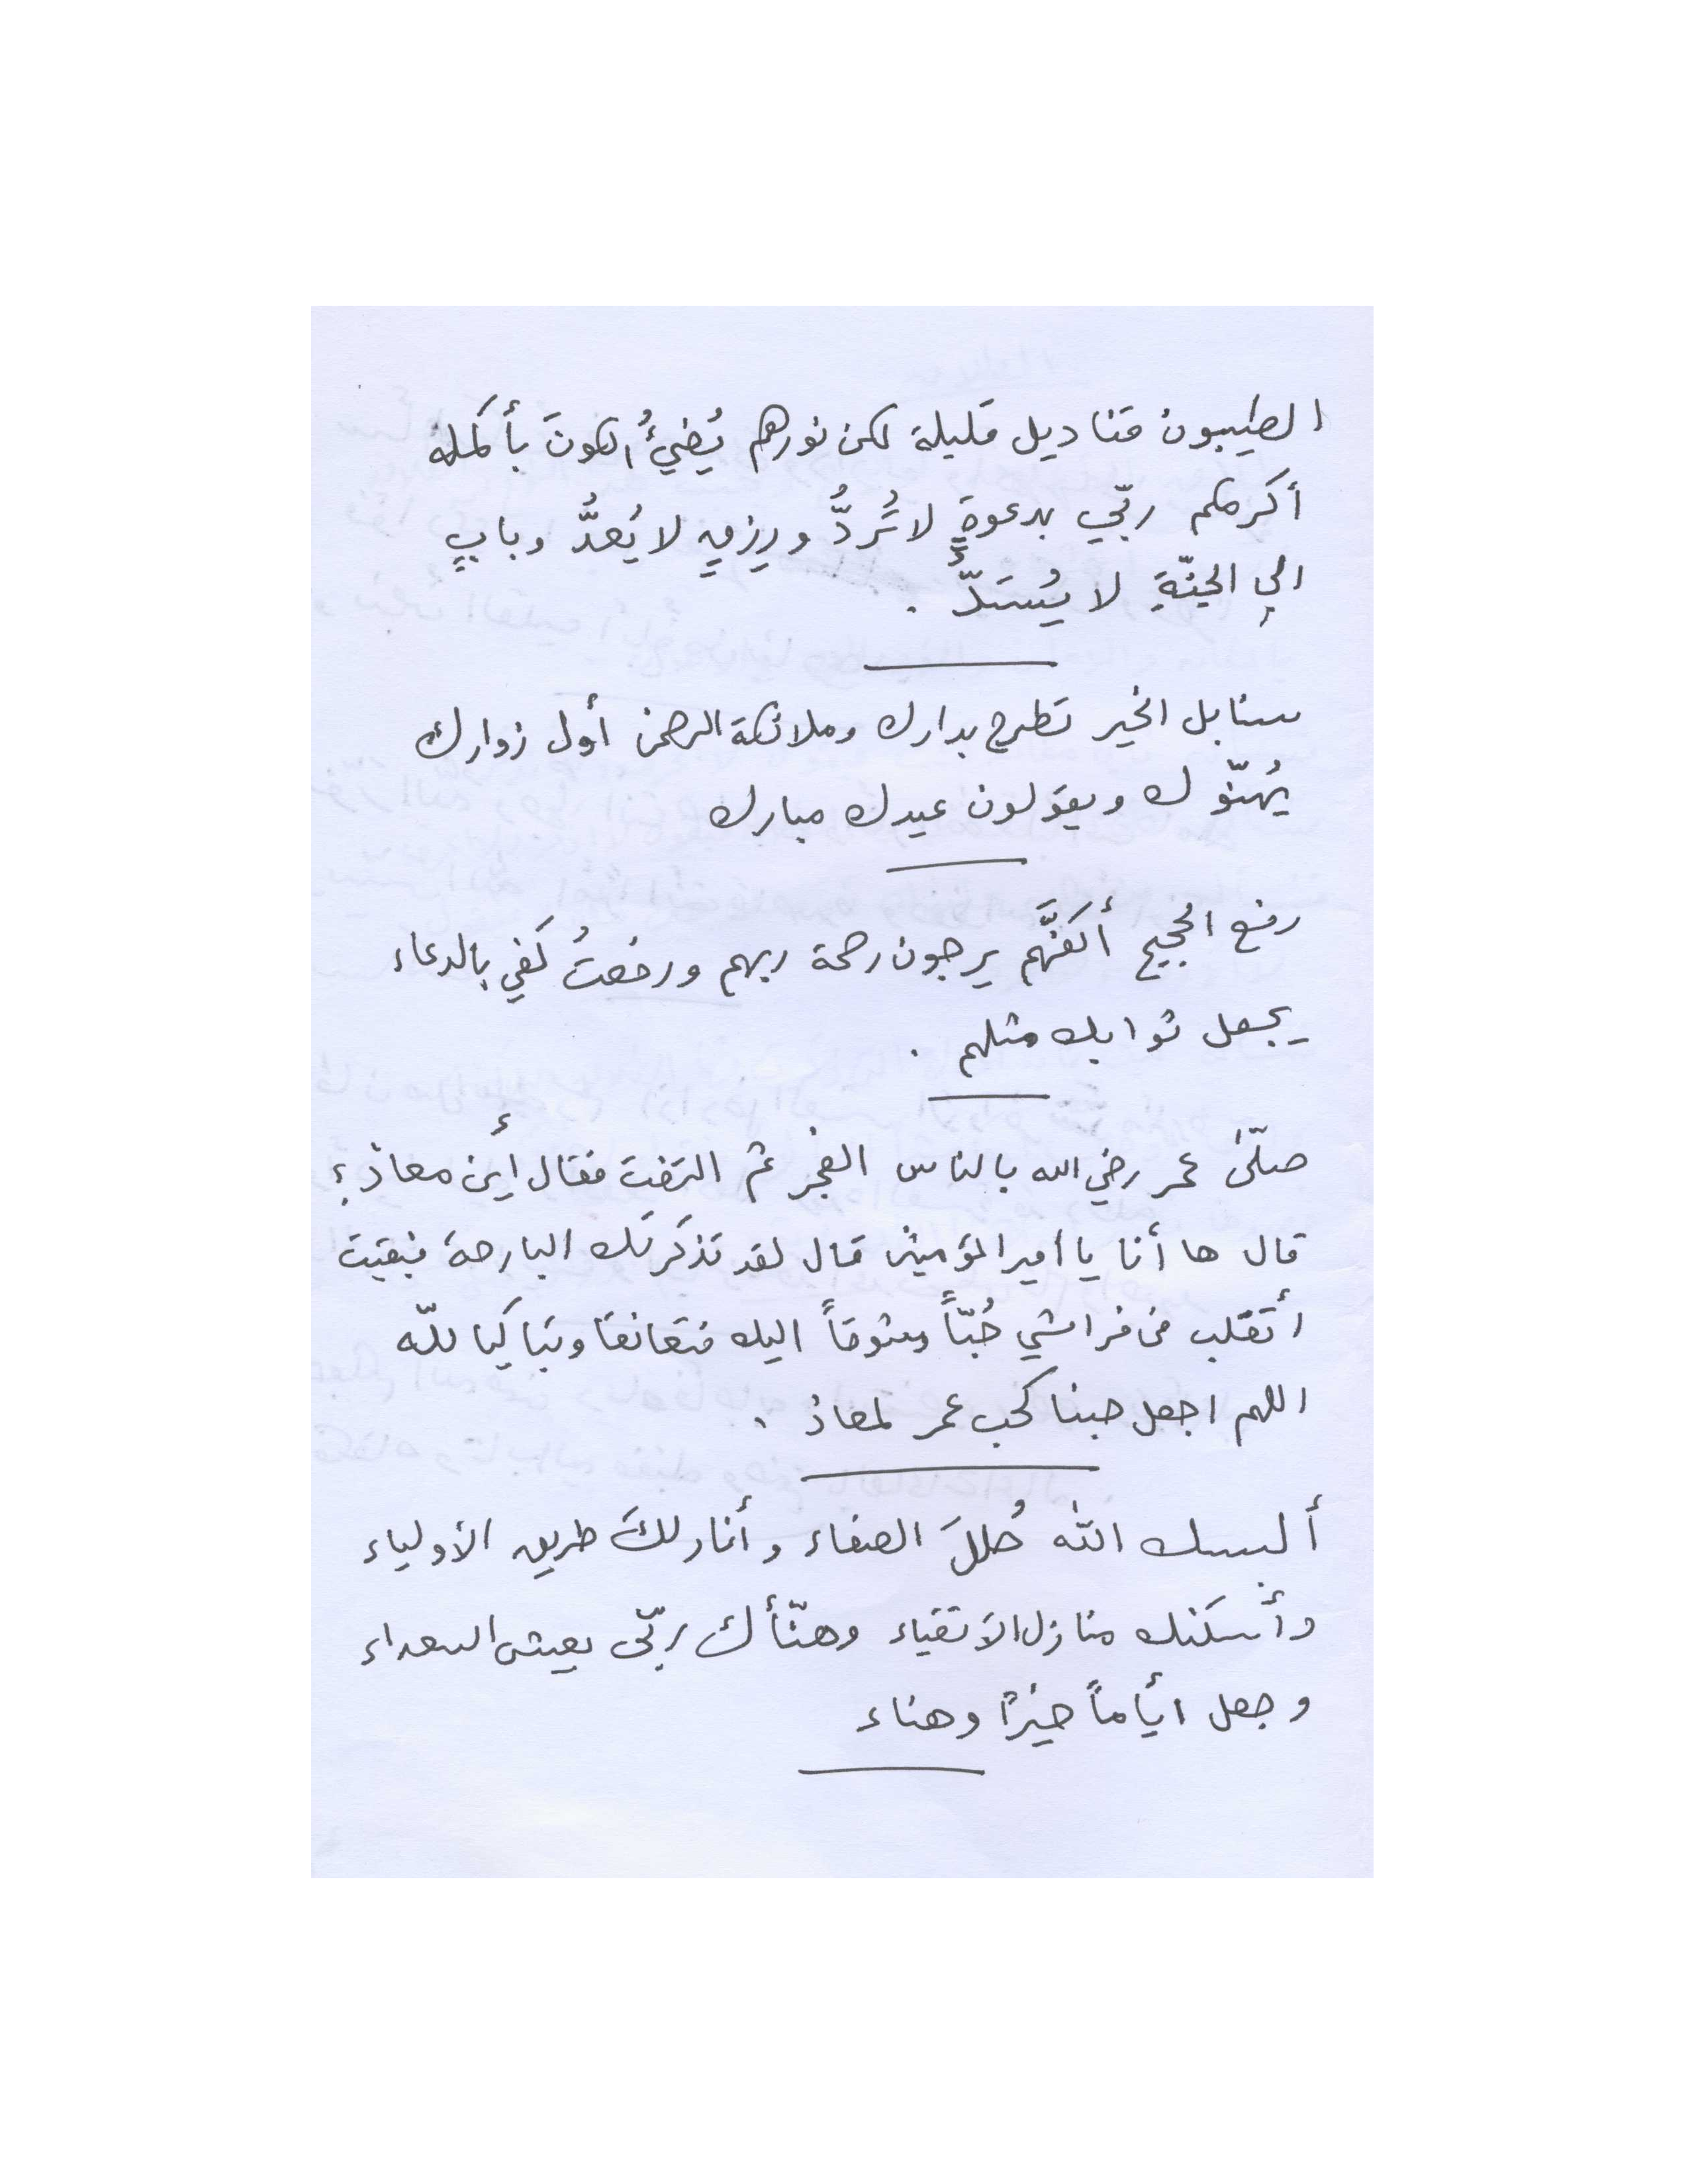 الطيبون قناديل قليلة لكن نورهم يُضيءُ الكونَ بأكمله
أكرمكم ربّي بدعوةٍ لا تُردُّ ورزقٍ لا يُعدُّ وبابٍ
الى الجنّةِ لا يُسَدُّ .
سنابل الخير تطرح بدارك وملائكة الرحمن أول زوارك
يُهنّوك ويقولون عيدك مبارك
رفع الحجيج أكفَّهم يرجون رحمة ربهم ورفعتُ كفي بالدعاء
يجعل ثوابك مثلهم .
صلّى عمر رضي الله بالناس الفجر ثم التفت فقال أين معاذ؟
قال ها أنا يا امير المؤمنين قال لقد تذكرتك البارحة فبقيت
أتقلب في فراشي حُبّاً وشوقاً اليك فتعانقا وتباكيا لله
اللهم اجعل حبنا كحب عمر لمعاذ .
ألبسك الله حُللَ الصفاء وأنار لكَ طريق الأولياء
وأسكنك منازل الأتقياء وهنّأك ربّي بعيش السعداء
وجعل ايّاماً خيراً وهناء